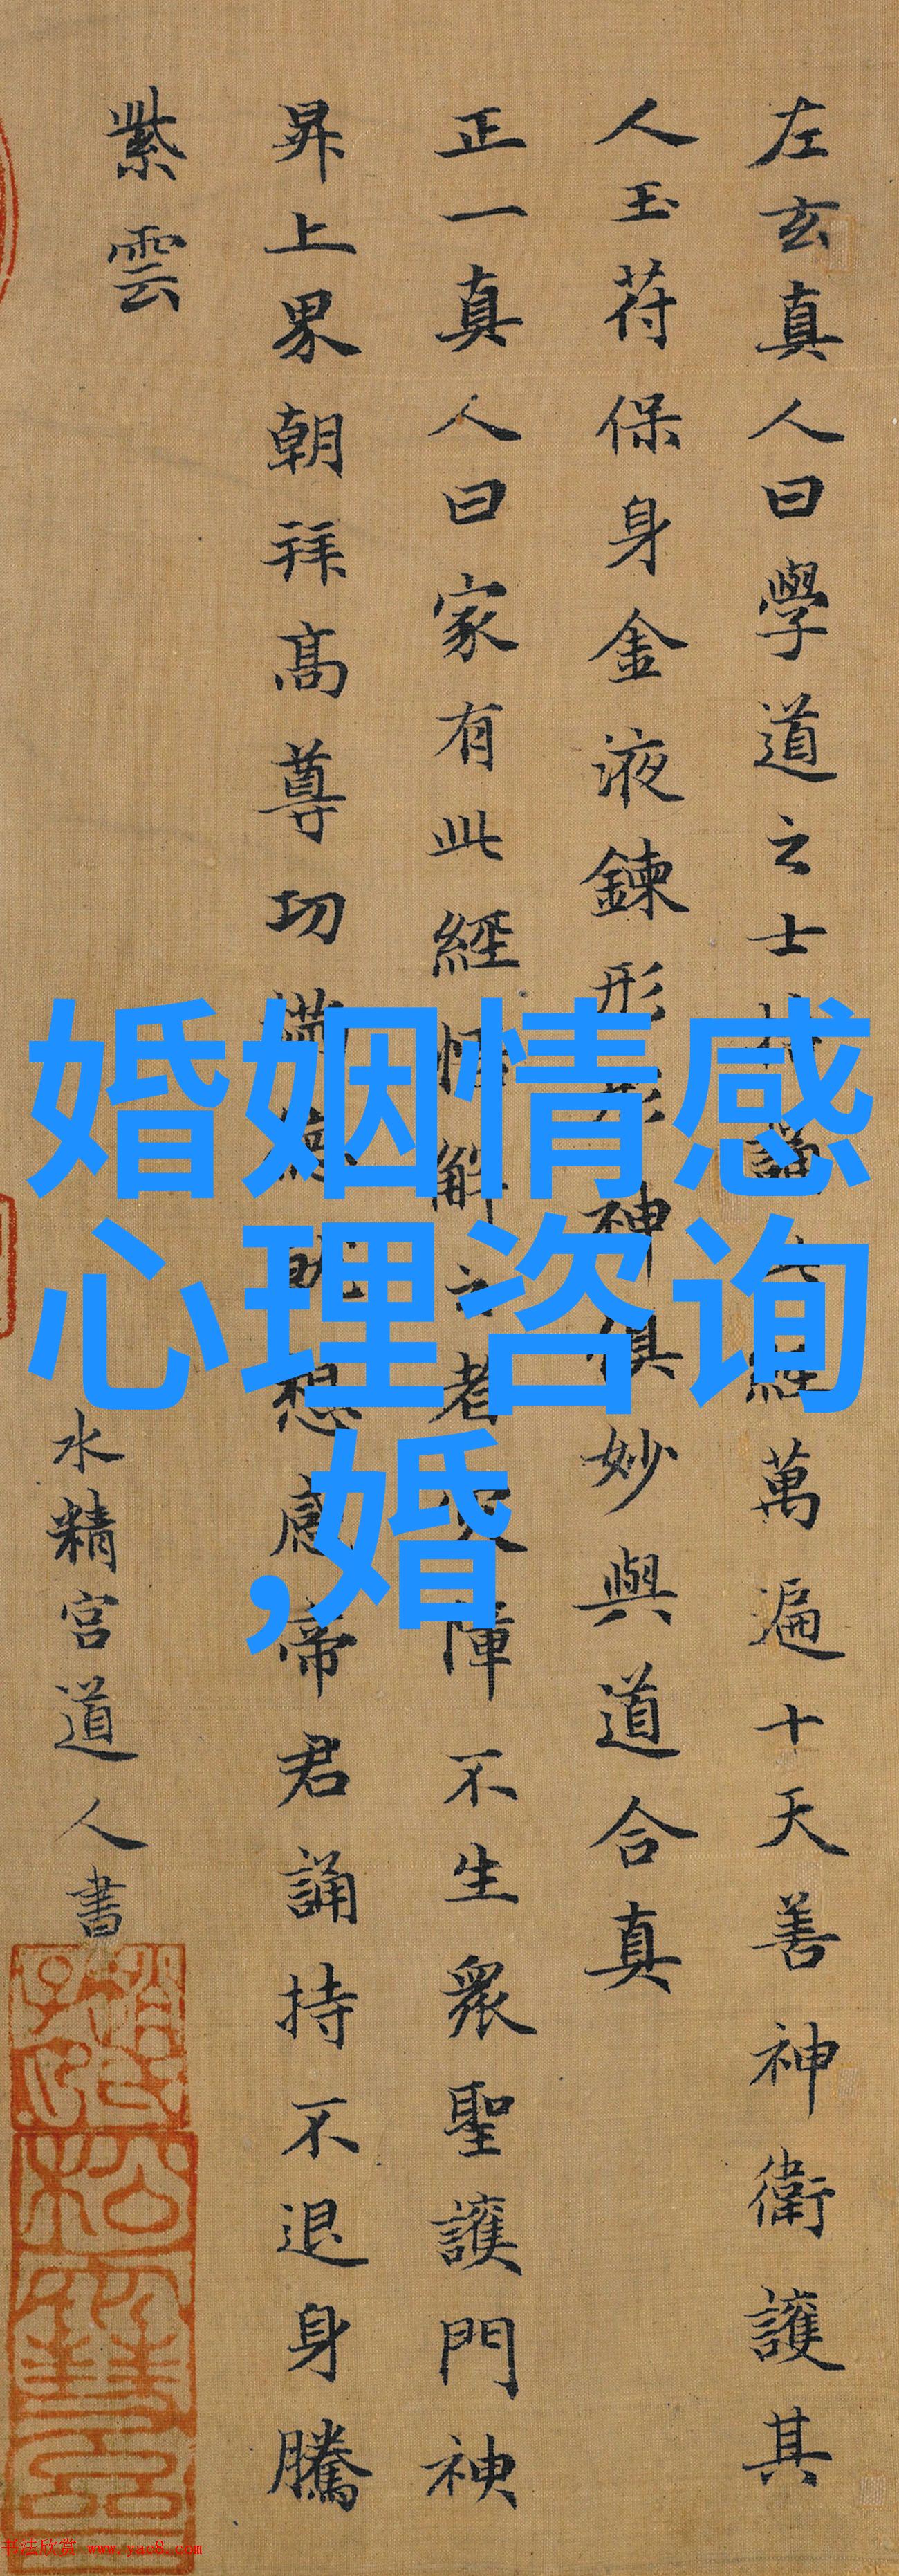 左玄真人曰學道之士持誦此經萬遍十天善神衛護其
人玉苻保身金液鍊形形神俱妙與道合真
正一真人曰家有此經悟解之者灾障不生衆聖護門神
昇上界朝拜高尊功滿德就想感帝君誦持不退身騰
紫雲
水精宫道人書
婚姻情感
心理咨询
,婚
书法欣赏 www.yac8.com